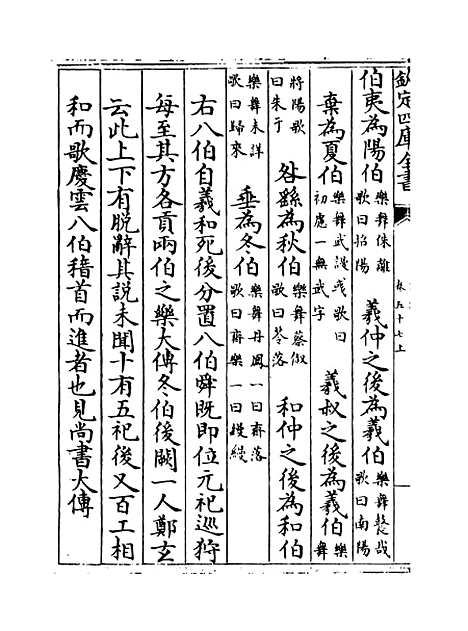 欽定四庫全書
卷五十七上
伯夷為陽伯樂舞侏離歌曰招陽 羲仲之後為羲伯樂舞鼚哉歌曰南陽
棄為夏伯樂舞武謾或歌曰初慮一無武字 羲叔之後為羲伯樂舞
將陽歌曰朱于 咎繇為秋伯樂舞蔡俶歌曰苓落 和仲之後為和伯
樂舞未詳歌曰歸來 垂為冬伯樂舞丹鳳一曰齊落歌曰齊樂一曰縵縵
右八伯自羲和死後分置八伯舜既即位元祀巡狩
每至其方各貢兩伯之樂大傳冬伯後闕一人鄭玄
云此上下有脫辭其說未聞十有五祀後又百工相
和而歌慶雲八伯稽首而進者也見尚書大傳